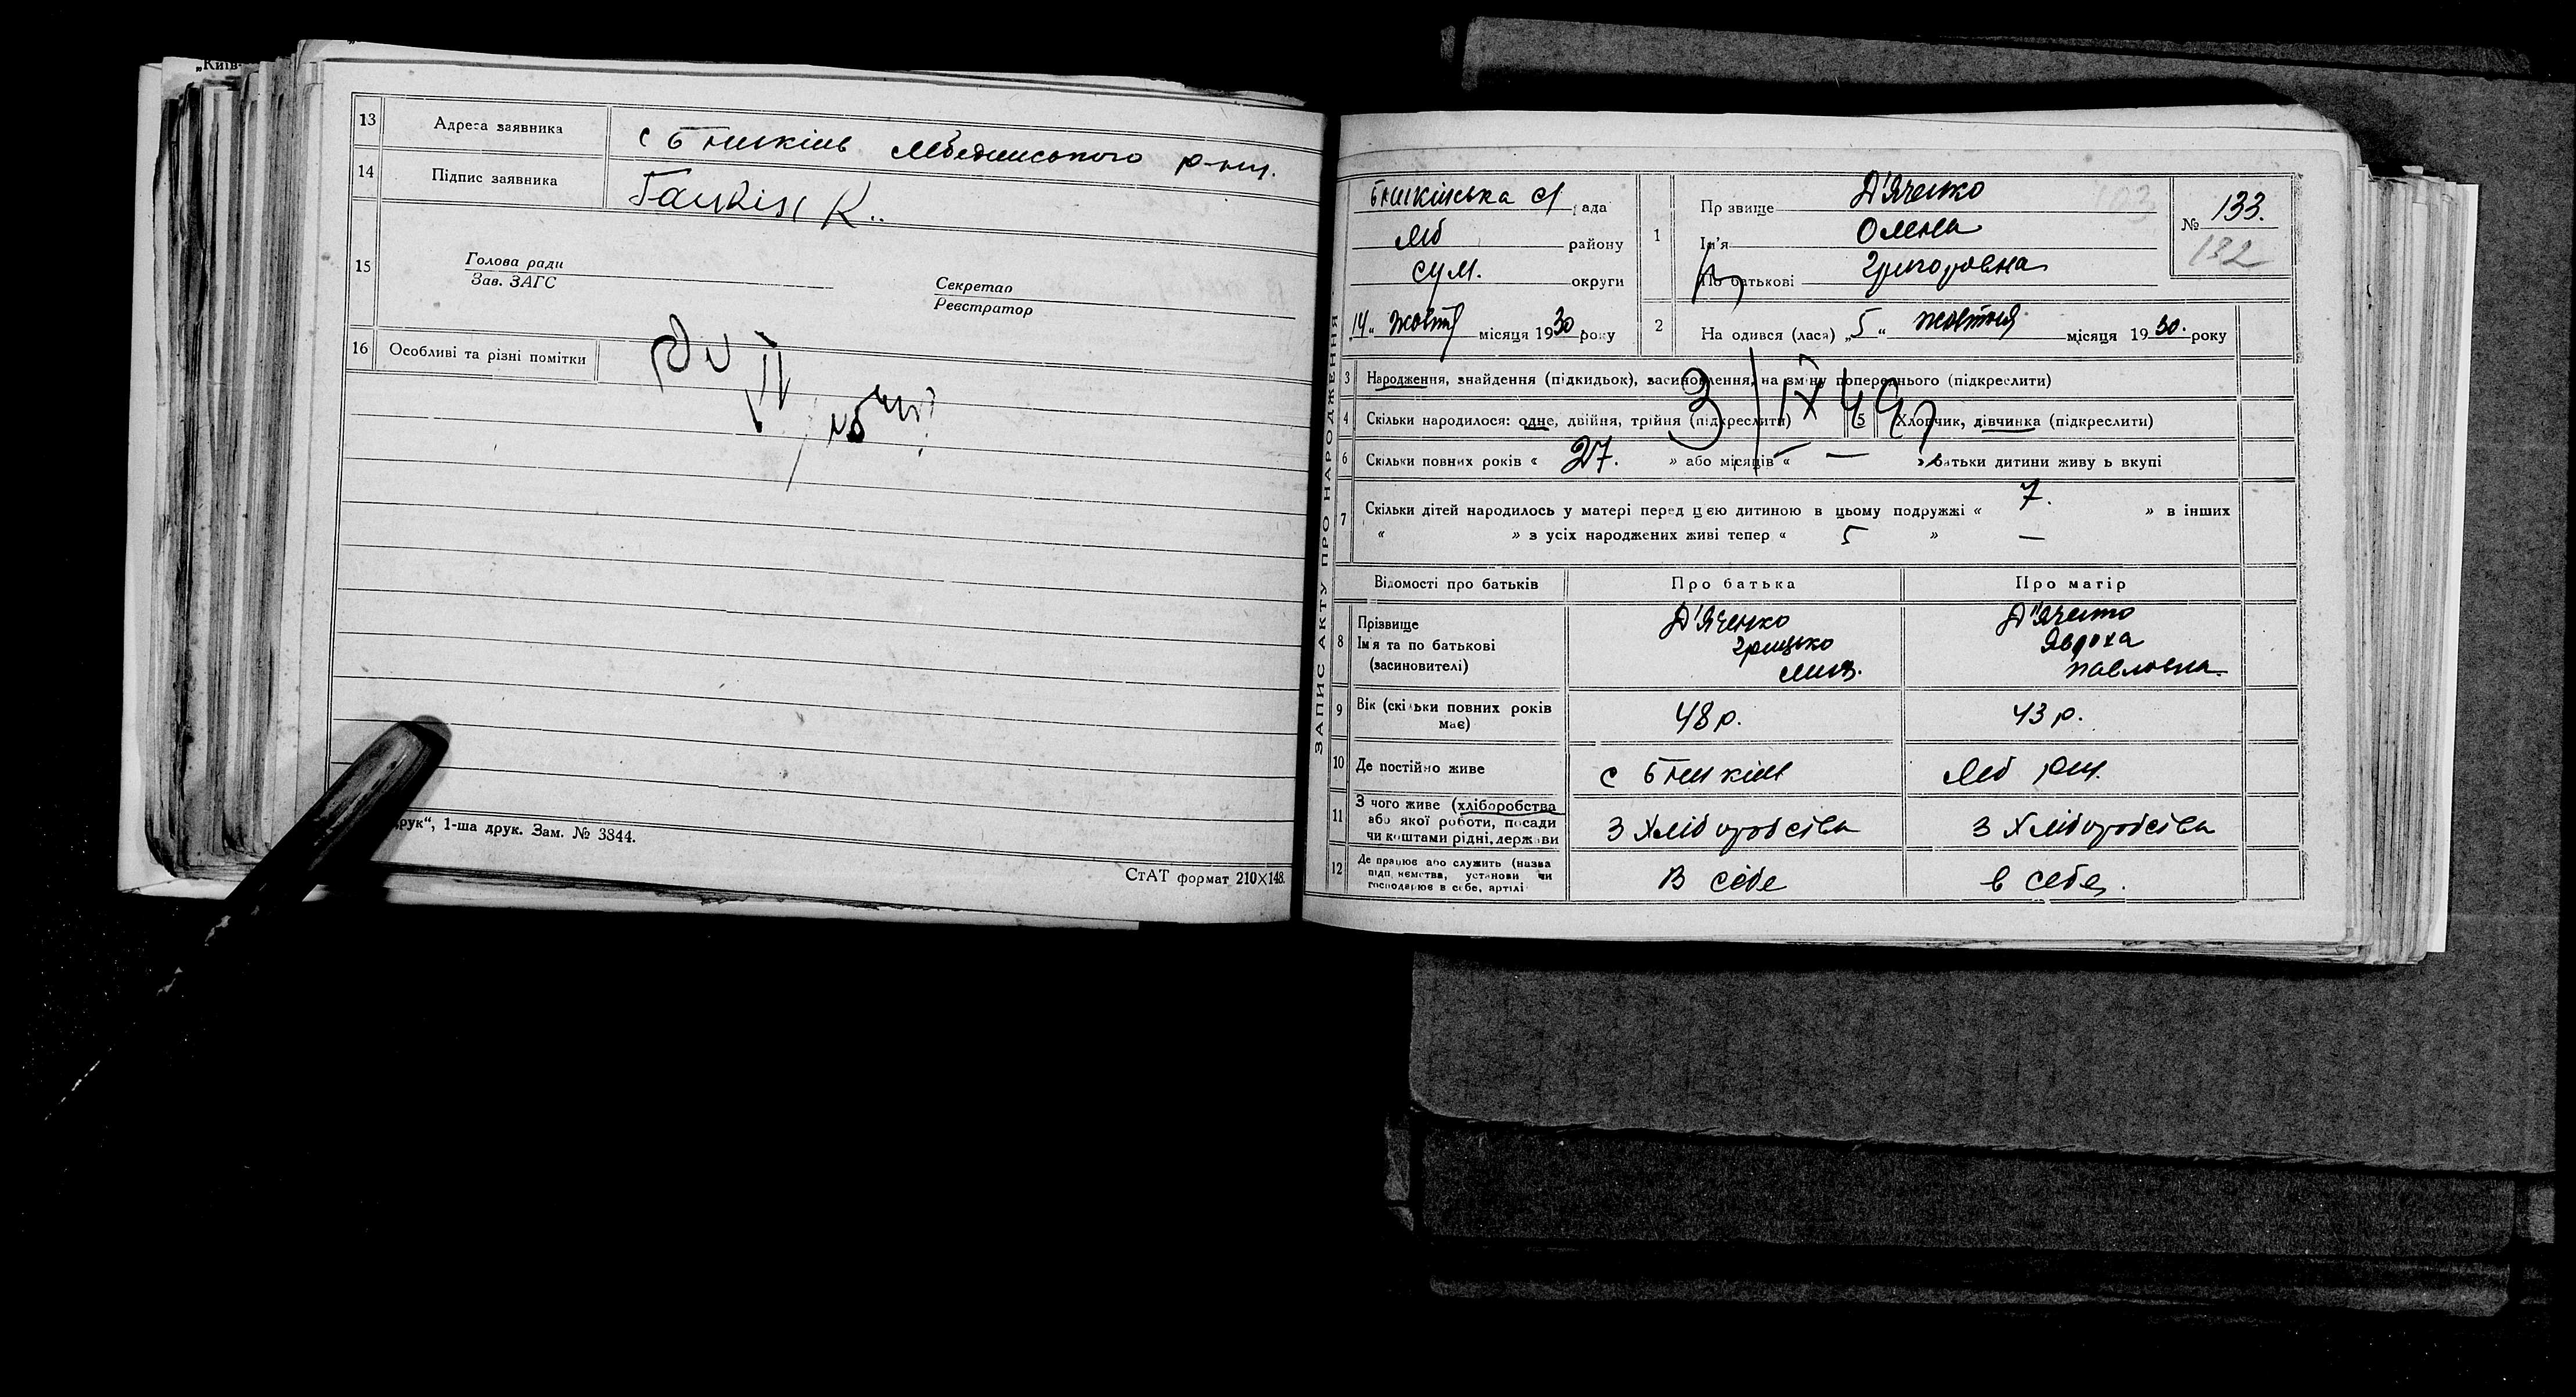 „Київ-
13 Адреса заявника с Бишкінь Лебединського р-ну.
14 Підпис заявника К..
15 Голова ради
Зав. ЗАГС
Секретар
Реєстратор
16 Особливі та різні помітки
друк“, 1-ша друк. Зам. № 3844.
СтАТ формат 210×148.
ЗАПИС АКТУ ПРО НАРОДЖЕННЯ
Бишкінська с/ рада
Леб району
Сум. округи
14 „ жовт місяця 1930 року
1 Прізвище Д'Яченко
Ім'я Олена
По батькові Григоровна
№ 133.
132
2 На одився (лася) „5 “ жовтня місяця 1930. року
3 Народження, знайдення (підкидьок), засиновлення, на зміну попереднього (підкреслити)
3/IX 49
4 Скільки народилося: одне, двійня, трійня (підкреслити) 5 Хлопчик, дівчинка (підкреслити)
6 Скільки повних років « 27. » або місяців « — » батьки дитини живу ь вкупі
7 Скільки дітей народилось у матері перед цією дитиною в цьому подружжі « 7. » в інших
« » з усіх народжених живі тепер « 5 » —
Відомості про батьків Про батька Про матір
8 Прізвище Д'Яченко Д'Яченко
Ім'я та по батькові Грицько Явдоха
(засиновителі) Павловна.
9 Вік (скільки повних років має) 48 р. 43 р.
10 Де постійно живе с Бишкінь Леб рну.
11 З чого живе (хліборобства
або якої роботи, посади
чи коштами рідні, держави
З Хліборобства З Хліборобства
12 Де працює або служить (назва
підприємства, установи чи
господарює в себе, артілі
В себе в себе.